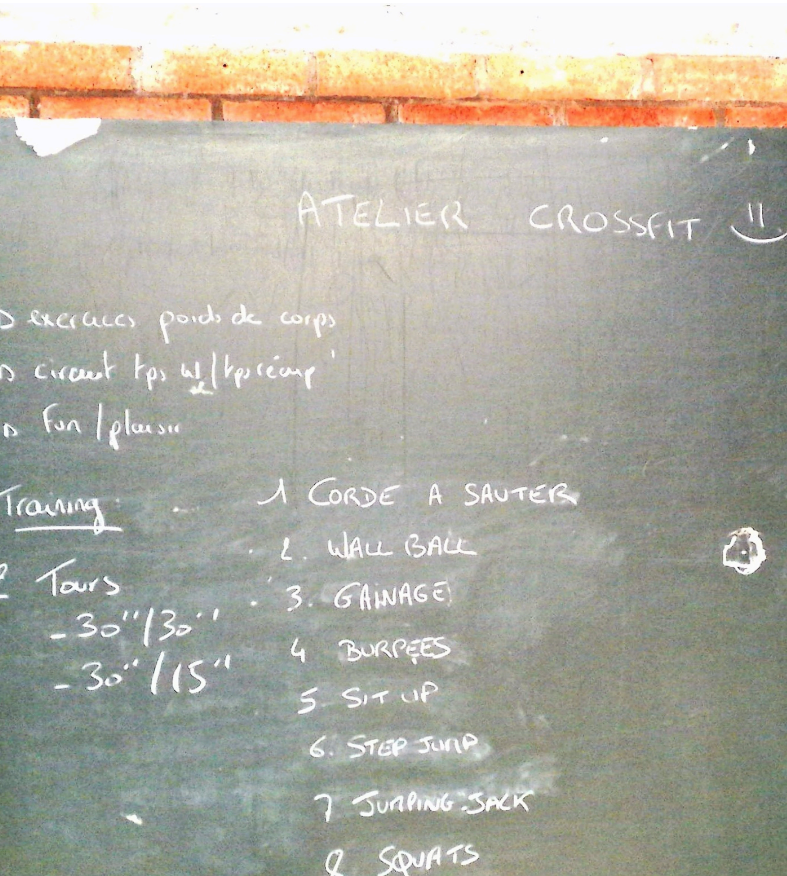 ATELIER CROSSFIT
exercices poids de corps
circuit tps w/tps récup'
Fun/plaisir
Training
2 Tours
-30"/30"
-30"/15"
1 CORDE A SAUTER
2. WALL BALL
3. GAINAGE
4 BURPEES
5 SIT UP
6. STEP JUMP
7 JUMPING-JACK
8 SQUATS